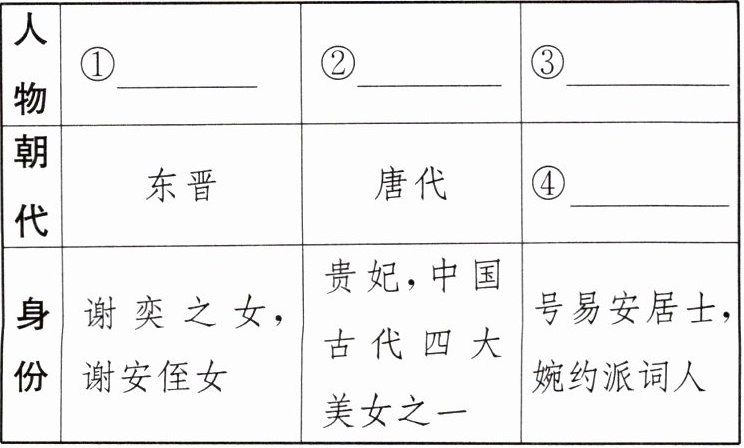 人物 ①________ ②________ ③________
朝代 东晋 唐代 ④________
身份 谢奕之女，谢安侄女 贵妃，中国古代四大美女之一 号易安居士，婉约派词人